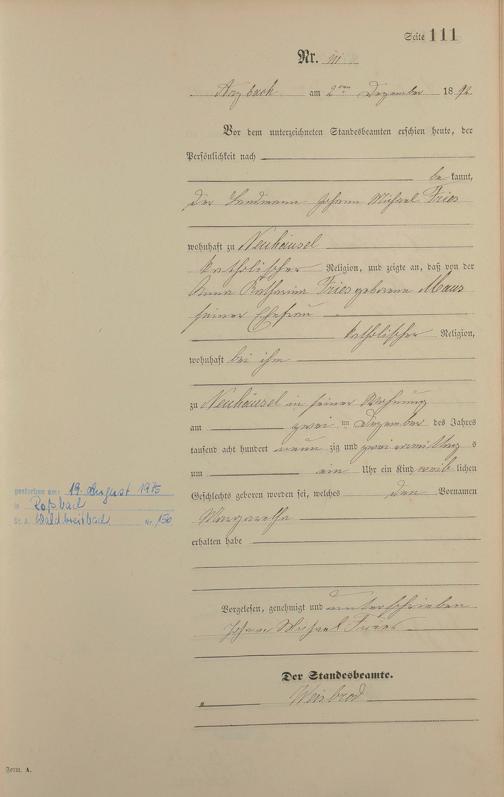 Seite 111
Nr. 111
Arzbach am 2ten Dezember 1892
Vor dem unterzeichneten Standesbeamten erschien heute, der
Persönlichkeit nach
be kannt,
der Landmann Johann Michael Fries
wohnhaft zu Neuhäusel
katholischer Religion, und zeigte an, daß von der
Anna Katharina Fries geborene Maus
seiner Ehefrau
katholischer Religion,
wohnhaft bei ihm
zu Neuhäusel in seiner Wohnung
am zwei ten Dezember des Jahres
tausend acht hundert neun zig und zwei vormittag s
um ein Uhr ein Kind weib lichen
Geschlechts geboren worden sei, welches den Vornamen
Margaretha
erhalten habe
gestorben am: 19. August 1975
in Roßbach
St. A. Waldbreitbach Nr. 150
Vorgelesen, genehmigt und unterschrieben
Johann Michael Fries
Der Standesbeamte.
Weisbrod
Form. A.